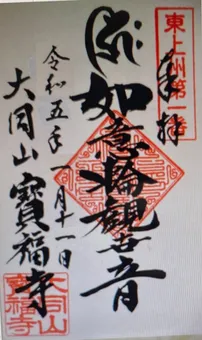 東上州第一番
奉拝
如意輪觀世音
令和五年一月十一日
大同山 寶福寺
大同山
寶福寺